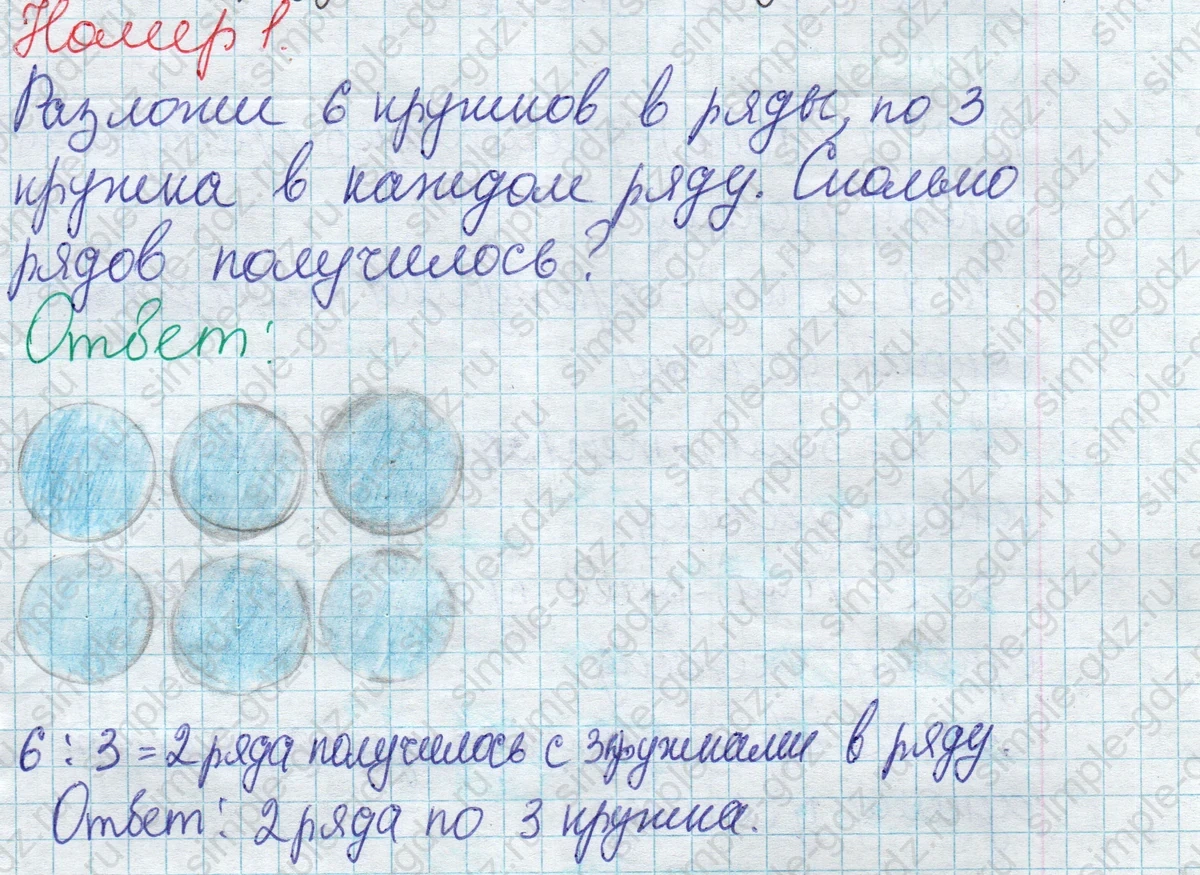 Номер 1.
Разложи 6 кружков в ряды, по 3
кружка в каждом ряду. Сколько
рядов получилось?
Ответ:
6 : 3 = 2 ряда получилось с 3 кружками в ряду.
Ответ: 2 ряда по 3 кружка.
simple-gdz.ru